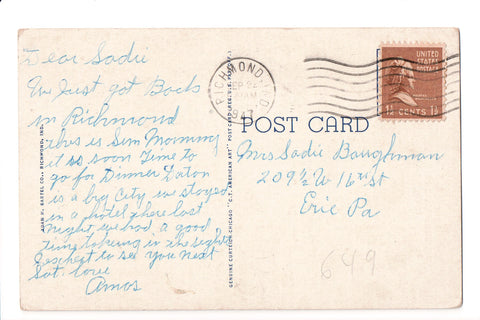 Dear Sadie
I'm Just got Back
in Richmond
this is Sun Morning
it is soon Time to
go for Dinner Eaton
is a big City we stayed
in a hotel here last
night we had a good
time taking in the sights
Expect to see you next
Sat love
Amos
JOHN H. BARTEL CO., RICHMOND, IND.
GENUINE CURTEICH-CHICAGO "C.T. AMERICAN ART" POST CARD (REG. U.S. PAT. OFF.)
RICHMOND, IND.
UNITED
STATES
POSTAGE
1½ CENTS 1½
POST CARD
Mrs Sadie Baughman
209½ W 16th St
Erie Pa
649